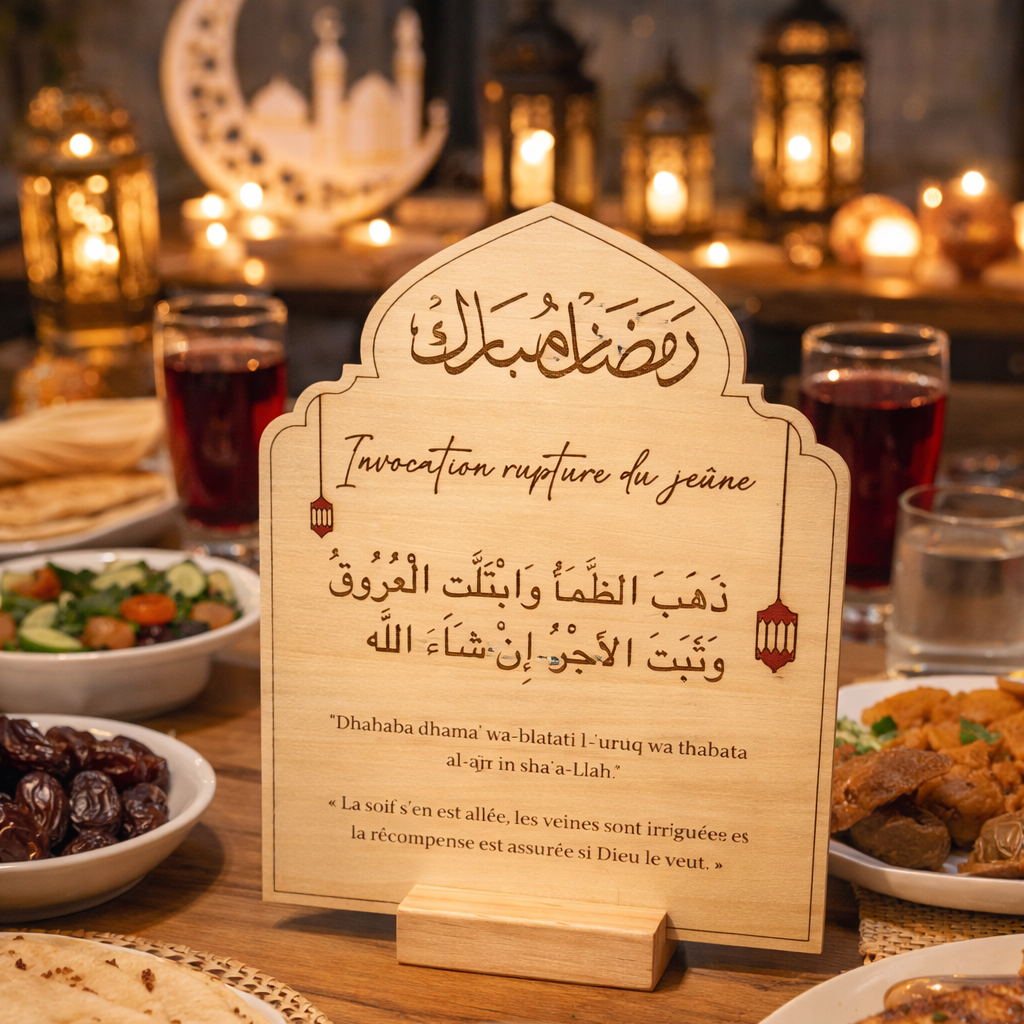 رَمَضَان مُبارك
Invocation rupture du jeûne
ذَهَبَ الظَّمَأُ وَابْتَلَّت الْعُرُوقُ
وَثَبَتَ الأَجْرُ إِنْ شَاَءَ اللَّه
"Dhahaba dhama' wa-blatati l-'uruq wa thabata
al-ajr in sha'a-Llah."
« La soif s'en est allée, les veines sont irriguées es
la récompense est assurée si Dieu le veut. »